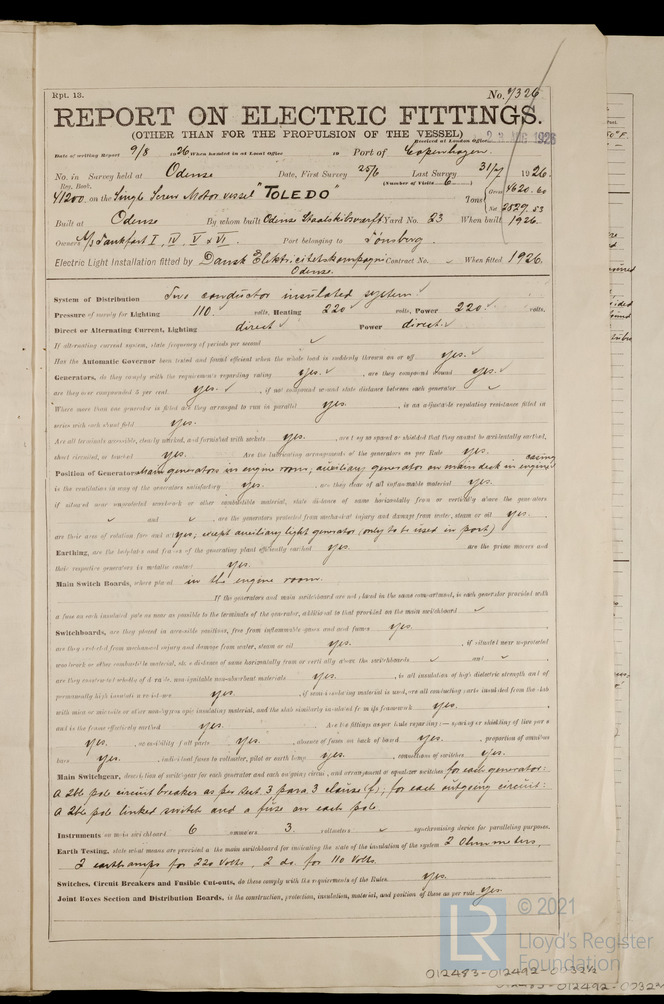 Rpt. 13.
No. 7326
REPORT ON ELECTRIC FITTINGS.
(OTHER THAN FOR THE PROPULSION OF THE VESSEL)
Received at London Office
AUG 1926
Date of writing Report 9/8 1926 When handed in at Local Office in Port of Copenhagen.
No. in Survey held at Odense Date, First Survey 25/6 Last Survey 31/7 1926.
Reg. Book. (Number of Visits 6)
41200 on the Single Screw Motor vessel "TOLEDO" Tons Gross 4620.60
Net 2829.53
Built at Odense By whom built Odense Staalskibsværft Yard No. 23 When built 1926.
Owners A/S Tankfart I, IV, V & VI. Port belonging to Tönsberg.
Electric Light Installation fitted by Dansk Elektricitetskompagni Contract No. When fitted 1926.
Odense.
System of Distribution Two conductor insulated system.
Pressure of supply for Lighting 110. volts, Heating 220 volts, Power 220. volts.
Direct or Alternating Current, Lighting direct Power direct.
If alternating current system, state frequency of periods per second
Has the Automatic Governor been tested and found efficient when the whole load is suddenly thrown on or off yes.
Generators, do they comply with the requirements regarding rating yes. , are they compound wound yes.
are they over compounded 5 per cent. yes. , if not compound wound state distance between each generator
Where more than one generator is fitted are they arranged to run in parallel yes. , is an adjustable regulating resistance fitted in
series with each shunt field yes.
Are all terminals accessible, clearly marked, and furnished with sockets yes. , are they so spaced or shielded that they cannot be accidentally earthed,
short circuited, or touched yes. Are the lubricating arrangements of the generators as per Rule yes.
Position of Generators main generators in engine room, auxiliary generator on main deck in engine casing
is the ventilation in way of the generators satisfactory yes. , are they clear of all inflammable material yes.
if situated near unprotected woodwork or other combustible material, state distance of same horizontally from or vertically above the generators
and , are the generators protected from mechanical injury and damage from water, steam or oil yes.
are their axes of rotation fore and aft yes, except auxiliary light generator (only to be used in port)
Earthing, are the bedplates and frames of the generating plant efficiently earthed yes. are the prime movers and
their respective generators in metallic contact yes.
Main Switch Boards, where placed in the engine room.
If the generators and main switchboard are not placed in the same compartment, is each generator provided with
a fuse on each insulated pole as near as possible to the terminals of the generator, additional to that provided on the main switchboard
Switchboards, are they placed in accessible positions, free from inflammable gases and acid fumes yes.
are they protected from mechanical injury and damage from water, steam or oil yes. , if situated near unprotected
woodwork or other combustible material, state distance of same horizontally from or vertically above the switchboards and
are they constructed wholly of durable, non-ignitable non-absorbent materials yes. , is all insulation of high dielectric strength and of
permanently high insulation resistance yes. , if semi-insulating material is used, are all conducting parts insulated from the slab
with mica or micanite or other non-hygroscopic insulating material, and the slab similarly insulated from its framework yes.
and is the frame effectively earthed yes. Are the fittings as per Rule regarding:— spacing or shielding of live parts
yes. , accessibility of all parts yes. , absence of fuses on back of board yes. , proportion of omnibus
bars yes. , individual fuses to voltmeter, pilot or earth lamp yes. , connections of switches yes.
Main Switchgear, description of switchgear for each generator and each outgoing circuit, and arrangement of equaliser switches for each generator:
A 2ble pole circuit breaker as per Sect. 3 para 3 clause (f); for each outgoing circuit:
A 2ble pole linked switch and a fuse on each pole
Instruments on main switchboard 6 ammeters 3. voltmeters synchronising device for paralleling purposes.
Earth Testing, state what means are provided at the main switchboard for indicating the state of the insulation of the system 2 Ohmmeters
2 earthlamps for 220 volts, 2 do. for 110 volts.
Switches, Circuit Breakers and Fusible Cut-outs, do these comply with the requirements of the Rules yes.
Joint Boxes Section and Distribution Boards, is the construction, protection, insulation, material, and position of these as per rule yes.
© 2021
LR
Lloyd's Register
Foundation
012483-012492-0032